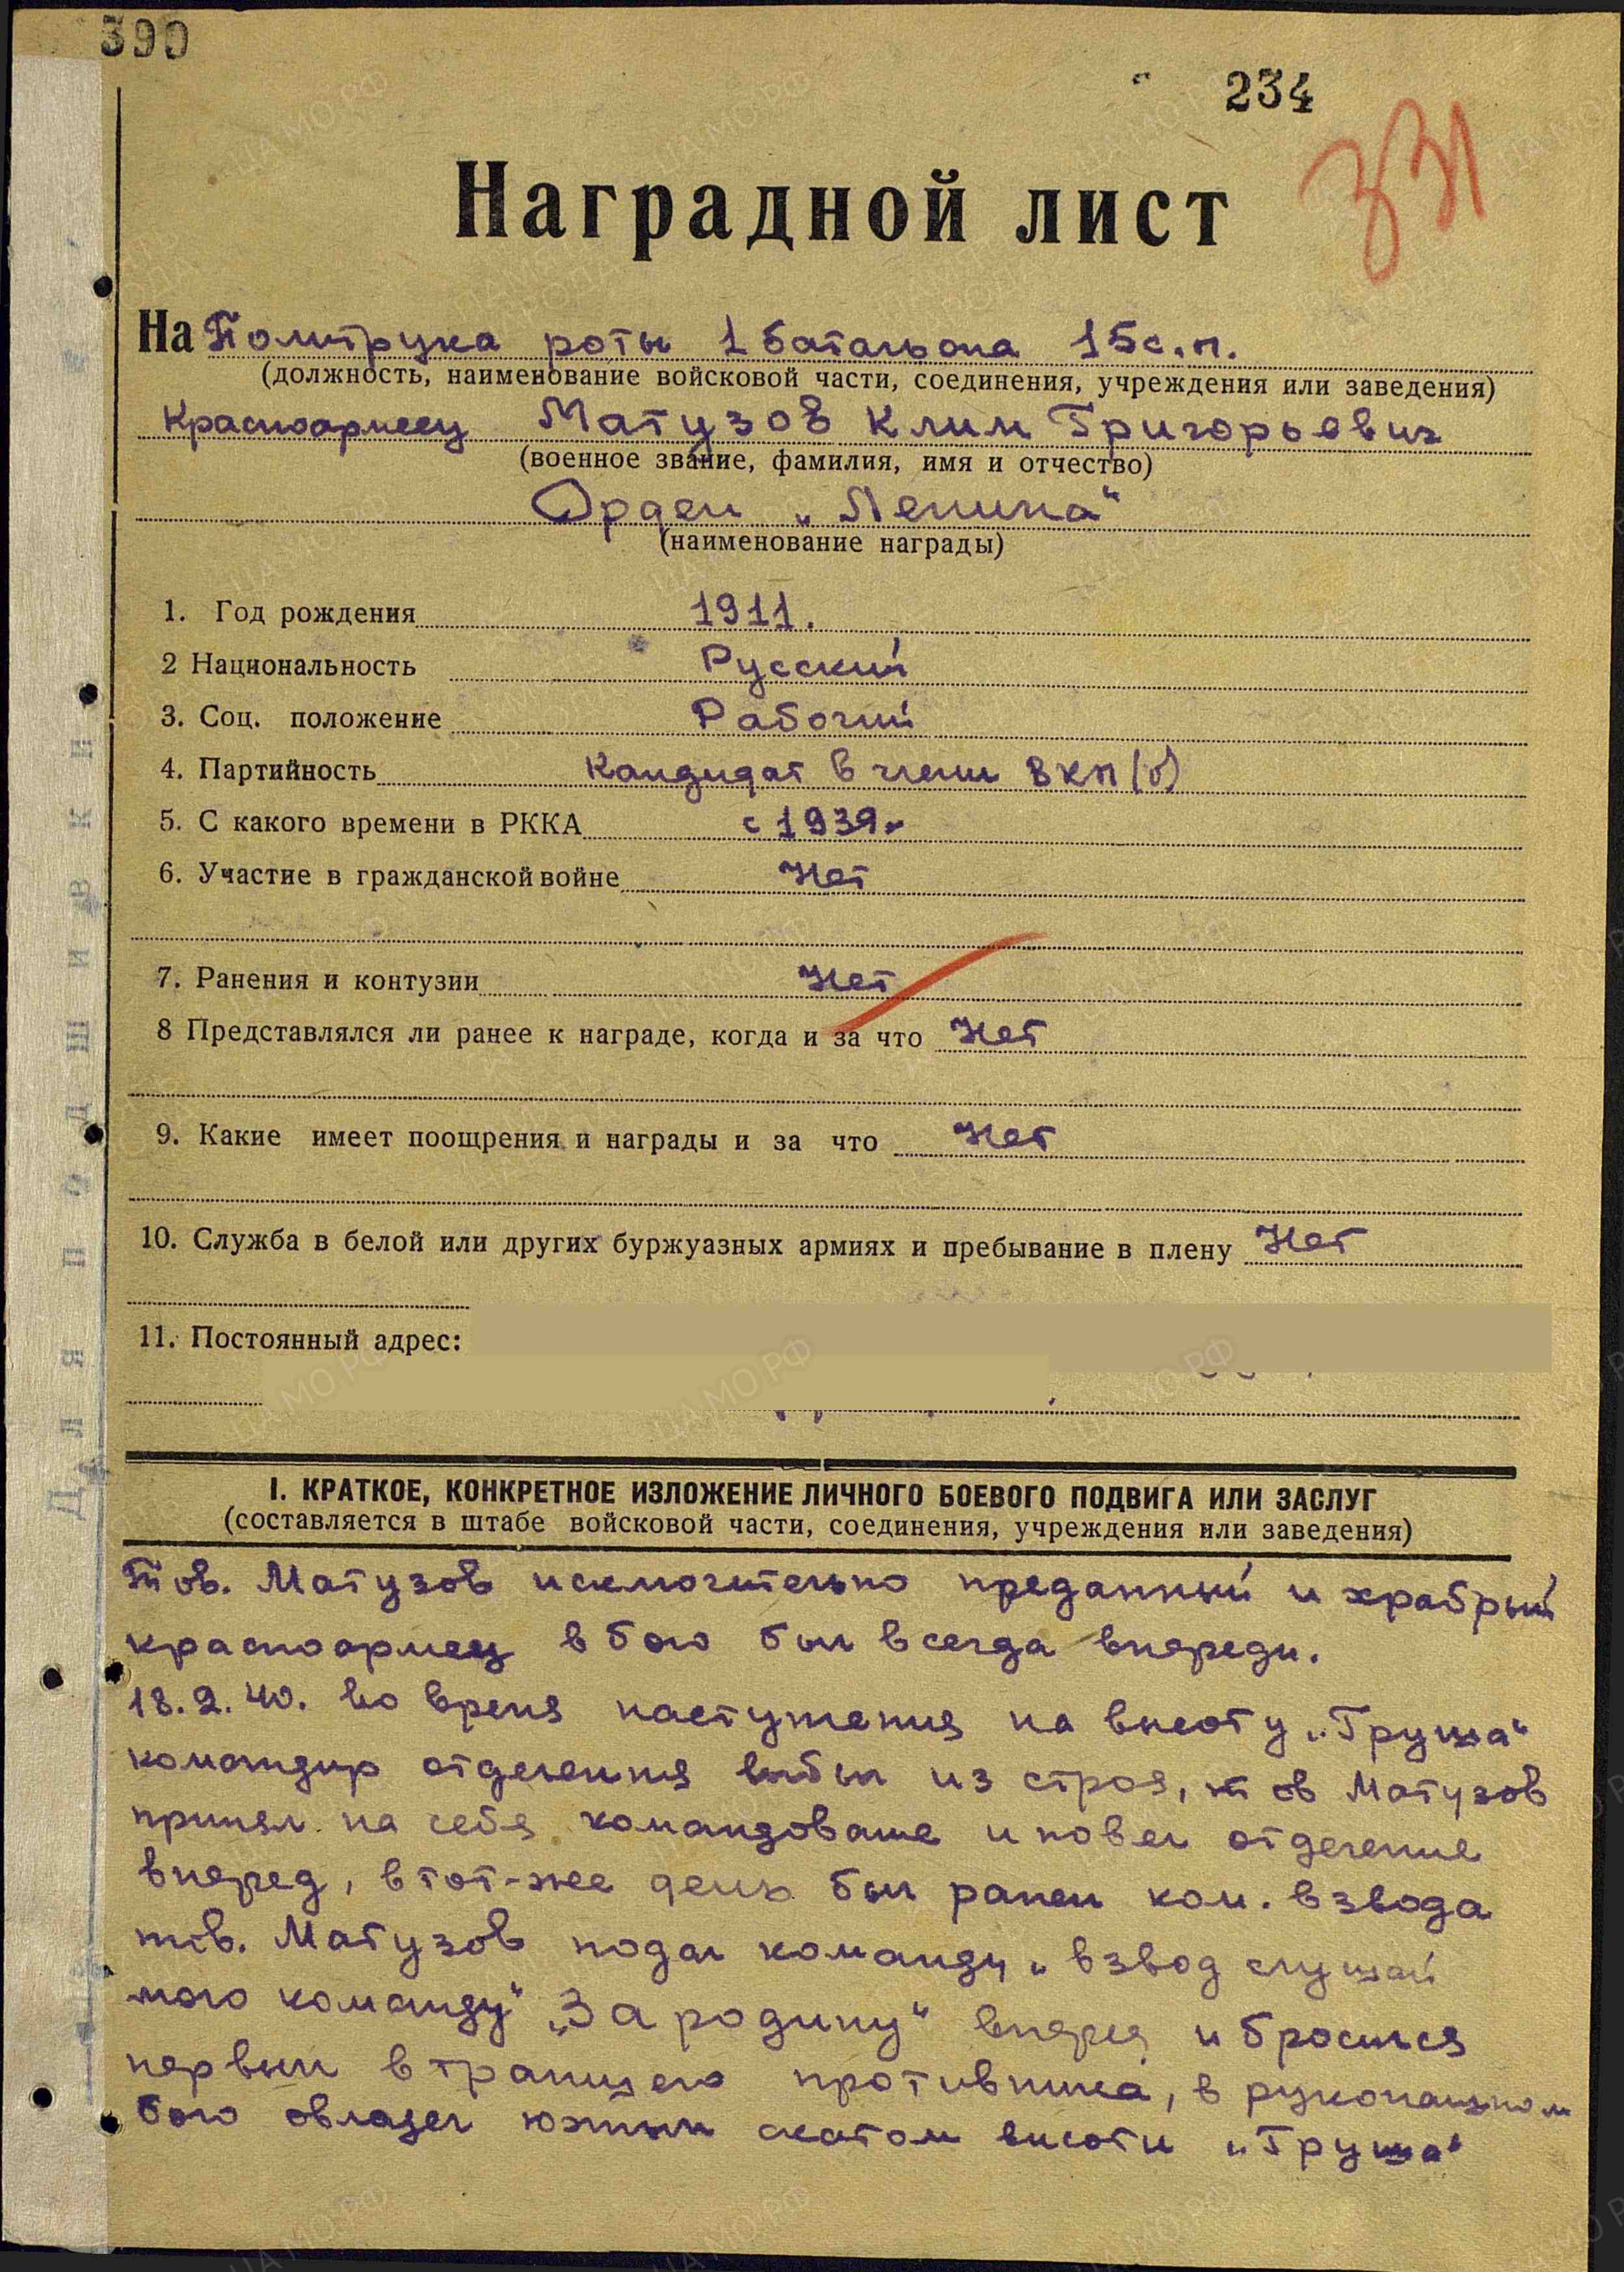 390
234
331
Наградной лист
На Политрука роты 1 батальона 15 с.п.
(должность, наименование войсковой части, соединения, учреждения или заведения)
Красноармеец Матузов Клим Григорьевич
(военное звание, фамилия, имя и отчество)
Орден „Ленина“
(наименование награды)
1. Год рождения 1911.
2 Национальность Русский
3. Соц. положение Рабочий
4. Партийность Кандидат в члены ВКП(б)
5. С какого времени в РККА с 1939г
6. Участие в гражданской войне Нет
7. Ранения и контузии Нет
8 Представлялся ли ранее к награде, когда и за что Нет
9. Какие имеет поощрения и награды и за что Нет
10. Служба в белой или других буржуазных армиях и пребывание в плену Нет
11. Постоянный адрес:
I. КРАТКОЕ, КОНКРЕТНОЕ ИЗЛОЖЕНИЕ ЛИЧНОГО БОЕВОГО ПОДВИГА ИЛИ ЗАСЛУГ
(составляется в штабе войсковой части, соединения, учреждения или заведения)
Тов. Матузов исключительно преданный и храбрый
красноармеец в бою был всегда впереди.
18.2.40. во время наступления на высоту „Груша“
командир отделения выбыл из строя, тов Матузов
принял на себя командование и повел отделение
вперед, в тот-же день был ранен ком. взвода
тов. Матузов подал команду „взвод слушай
мою команду“ „За родину“ вперед и бросился
первым в траншею противника, в рукопашном
бою овладел южным скатом высоты „Груша“
Для подшивки
ЦАМО РФ